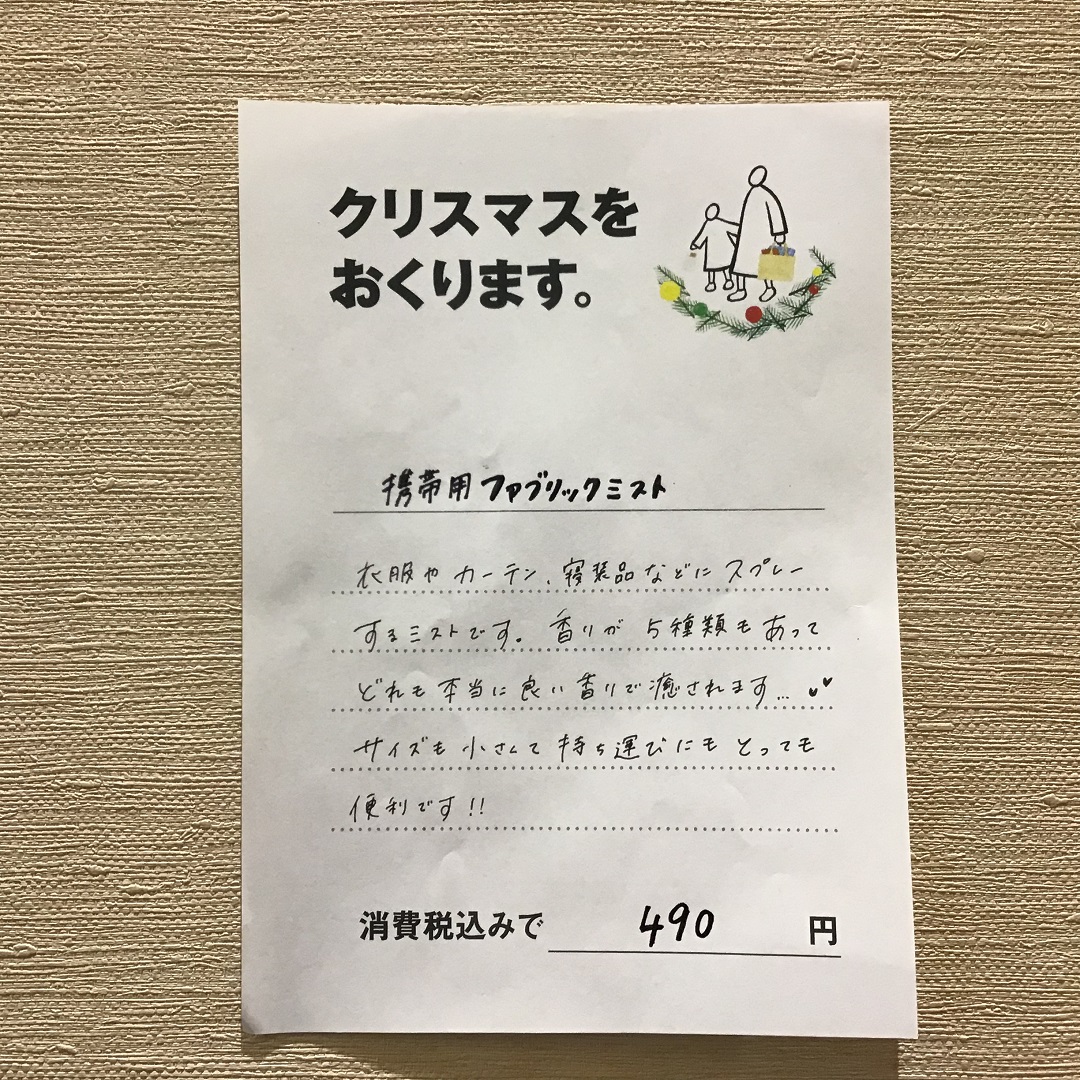 クリスマスを
おくります。
携帯用ファブリックミスト
衣服やカーテン、寝装品などにスプレー
するミストです。香りが5種類もあって
どれも本当に良い香りで癒されます...
サイズも小さくて持ち運びにもとっても
便利です!!
消費税込みで 490 円